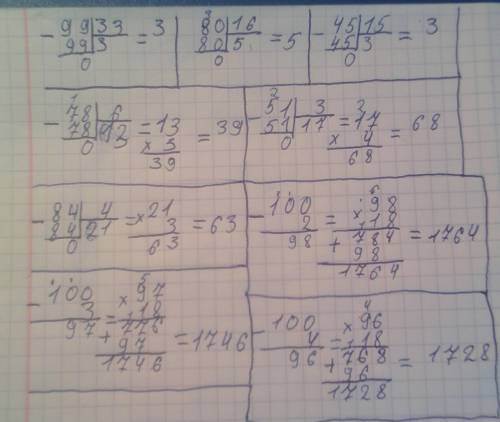 - 99|33 = 3
99|3
0
80|16 = 5
80|5
0
- 45|15 = 3
45|3
0
- 78|6 = 13 = 39
78
0
× 3
39
- 51|3 = 17 = 68
51|17
0
× 4
68
- 84|4 = × 21 = 63
84|21
0
3
63
- 100 = × 98 = 1764
2
98
18
+ 784
98
1764
- 100 = × 97 = 1746
3
97
18
776
+ 97
1746
- 100 = × 96 = 1728
4
96
18
+ 768
96
1728